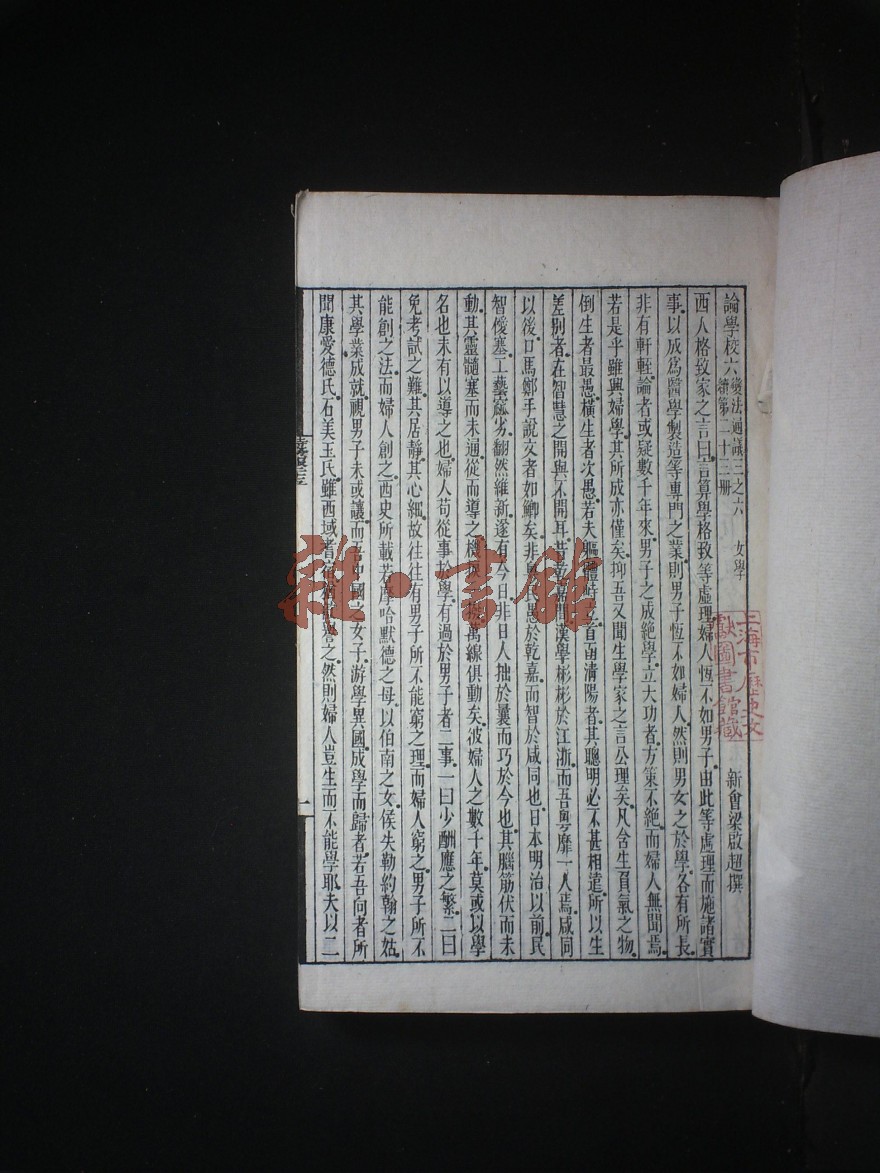 論學校六 變法通議三之六 女學
續第二十三冊
新會梁啟超撰
西人格致家之言曰言算學格致等虛理婦人恆不如男子由此等虛理而施諸實
事以成爲醫學製造等專門之業則男子恆不如婦人然則男女之於學各有所長
非有軒輊論者或疑數千年來男子之成絕學立大功者方策不絕而婦人無聞焉
若是乎雖興婦學其所成亦僅矣抑吾又聞生學家之言公理矣凡含生負氣之物
倒生者最愚橫生者次愚若夫軀體峙立首函清陽者其聰明必不甚相遠所以生
差別者在智慧之開與不開耳昔乾嘉間漢學彬彬於江浙而吾粵靡一人焉咸同
以後口馬鄭手說文者如鯽矣非粵民愚於乾嘉而智於咸同也日本明治以前民
智僿塞工藝窳劣翻然維新遂有今日非日人拙於曩而巧於今也其腦筋伏而未
動其靈髓塞而未通從而導之機捩一撥萬線俱動矣彼婦人之數千年莫或以學
名也未有以導之也婦人苟從事於學有過於男子者二事一曰少酬應之繁二曰
免考試之難其居靜其心細故往往有男子所不能窮之理而婦人窮之男子所不
能創之法而婦人創之西史所載若摩哈默德之母以伯南之女侯失勒約翰之姑
其學業成就視男子未或讓而吾中國之女子游學異國成學而歸者若吾向者所
聞康愛德氏石美玉氏雖西域耆宿猶歎譽之然則婦人豈生而不能學耶夫以二
一
上海市歷史文
獻圖書館藏
雜·書館